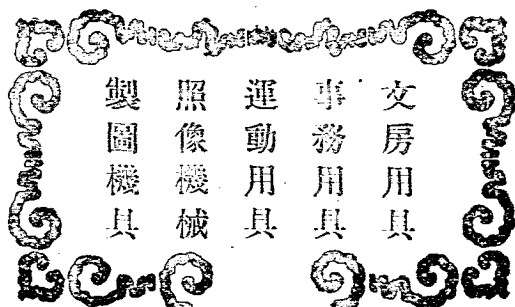 文房用具
事務用具
運動用具
照像機械
製圖機具